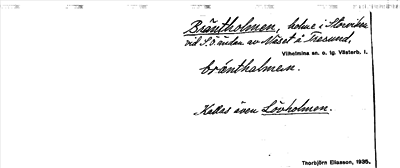 Bräntholmen, holme i Storviken
vid S.Ö. ändan av Näset å Tresund.
Vilhelmina sn. o. lg. Västerb. l.
bräntholmen.
Kallas även Lövholmen.
Thorbjörn Eliasson, 1935.